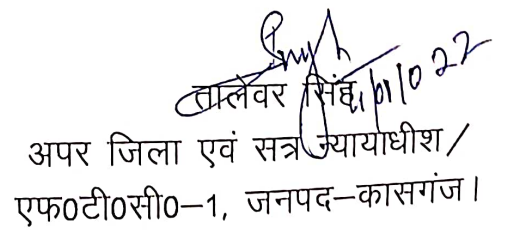 तालेवर सिंह
अपर जिला एवं सत्र न्यायाधीश/
एफ0टी0सी0-1, जनपद-कासगंज।